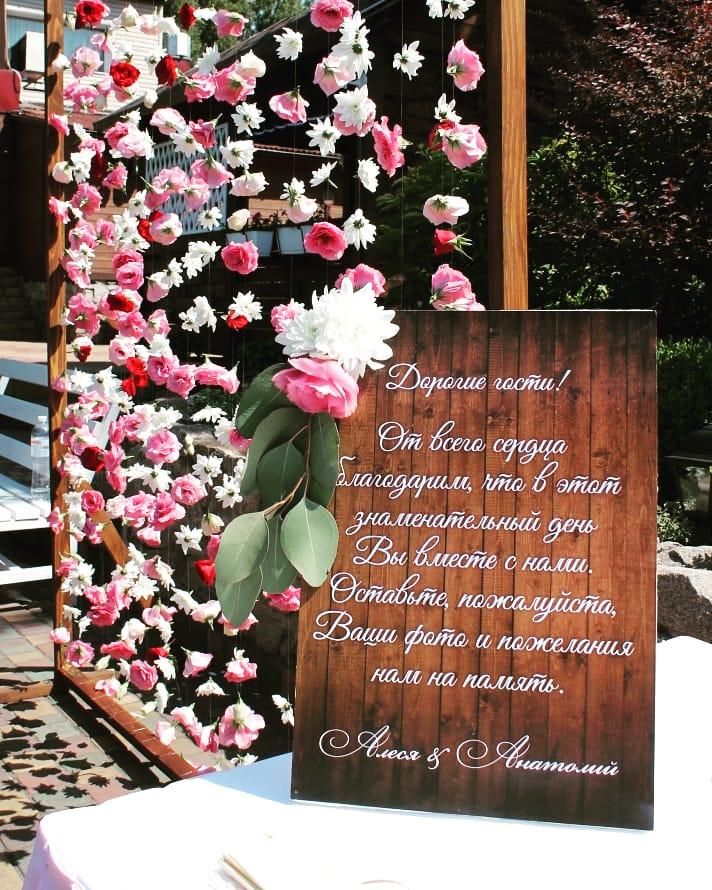 Дорогие гости!
От всего сердца
благодарим, что в этот
знаменательный день
Вы вместе с нами.
Оставьте, пожалуйста,
Ваши фото и пожелания
нам на память.
Алеся & Анатолий